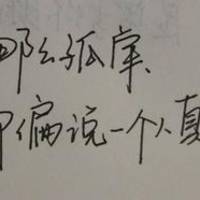 那么孤寂、
偏说一个人真